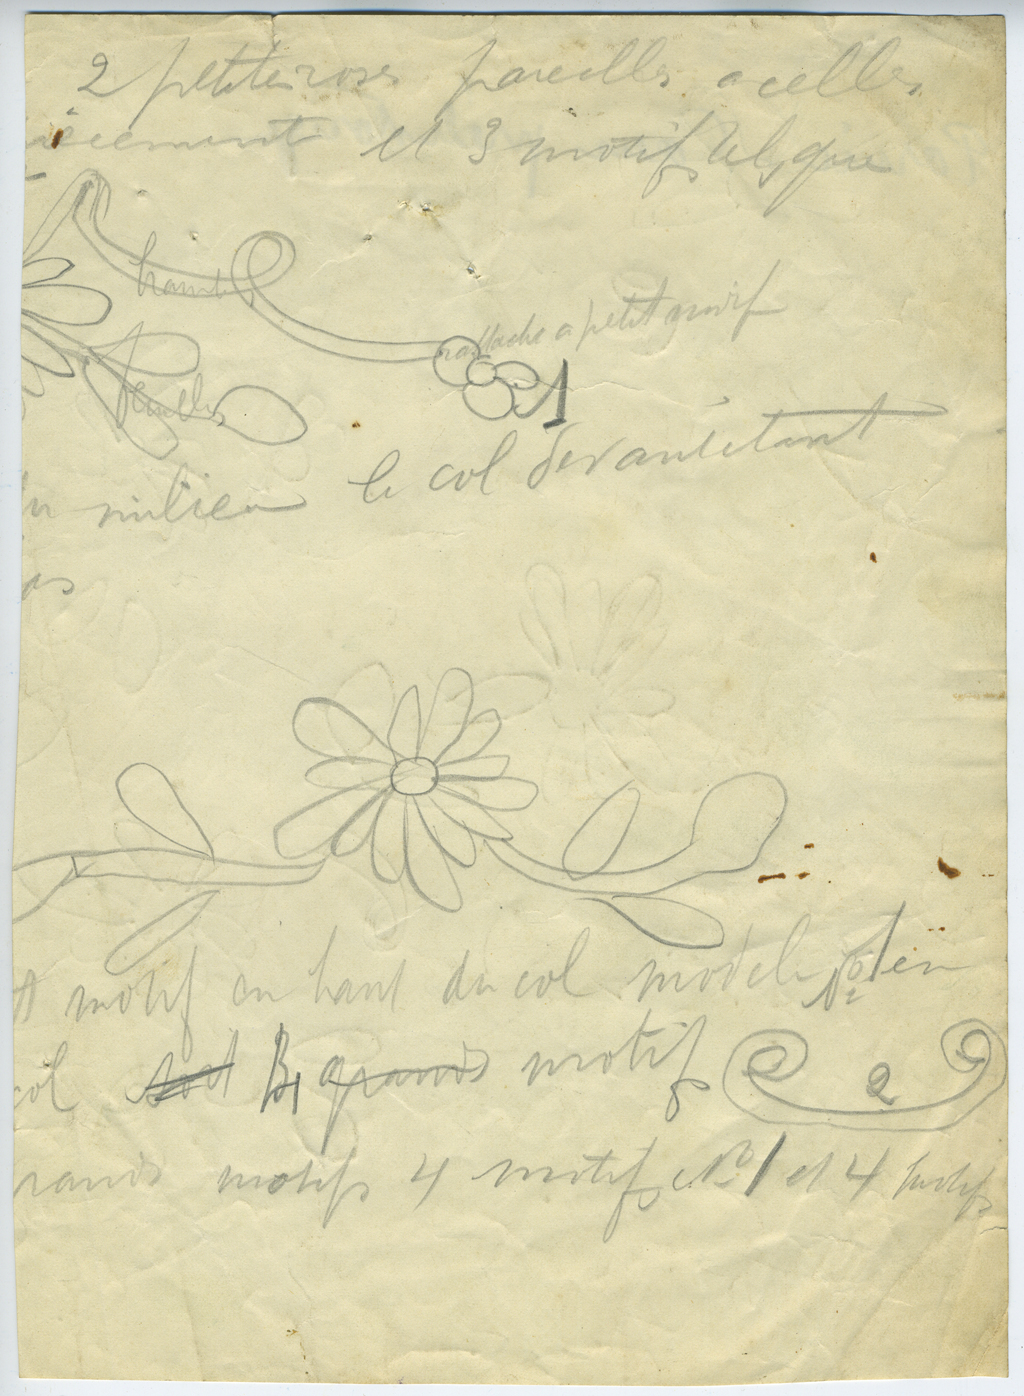 2 petites roses pareilles a celles
et 3 motifs tels que
rattache a petit motif
feuilles
1
milieu le col devant étant
as
motif en haut du col modele No 1 en
2
col grands motif
2
rands motifs 4 motifs No 1 et 4 motifs